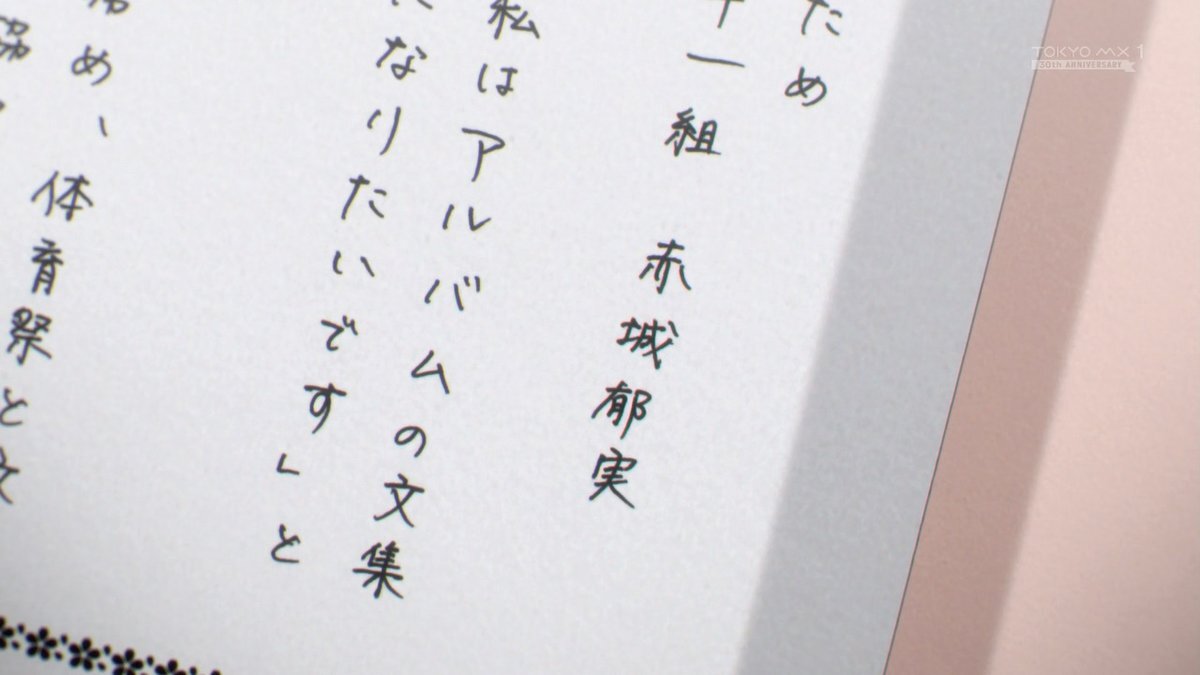 ため
十一組　赤城郁実
私はアルバムの文集
になりたいです」と
務め、体育祭と文
協
TOKYO MX 1
30th ANNIVERSARY